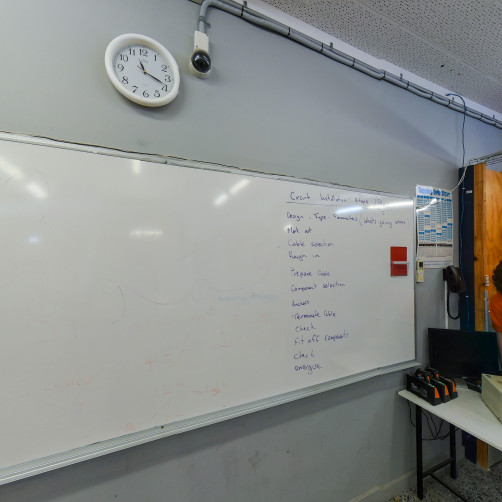 Circuit Installation steps
Design - Type - Parameters (whats going where
Mark out
Cable selection
Rough in
Prepare Cable
Component selection
Terminate Cable
check
fit off components
check
energise